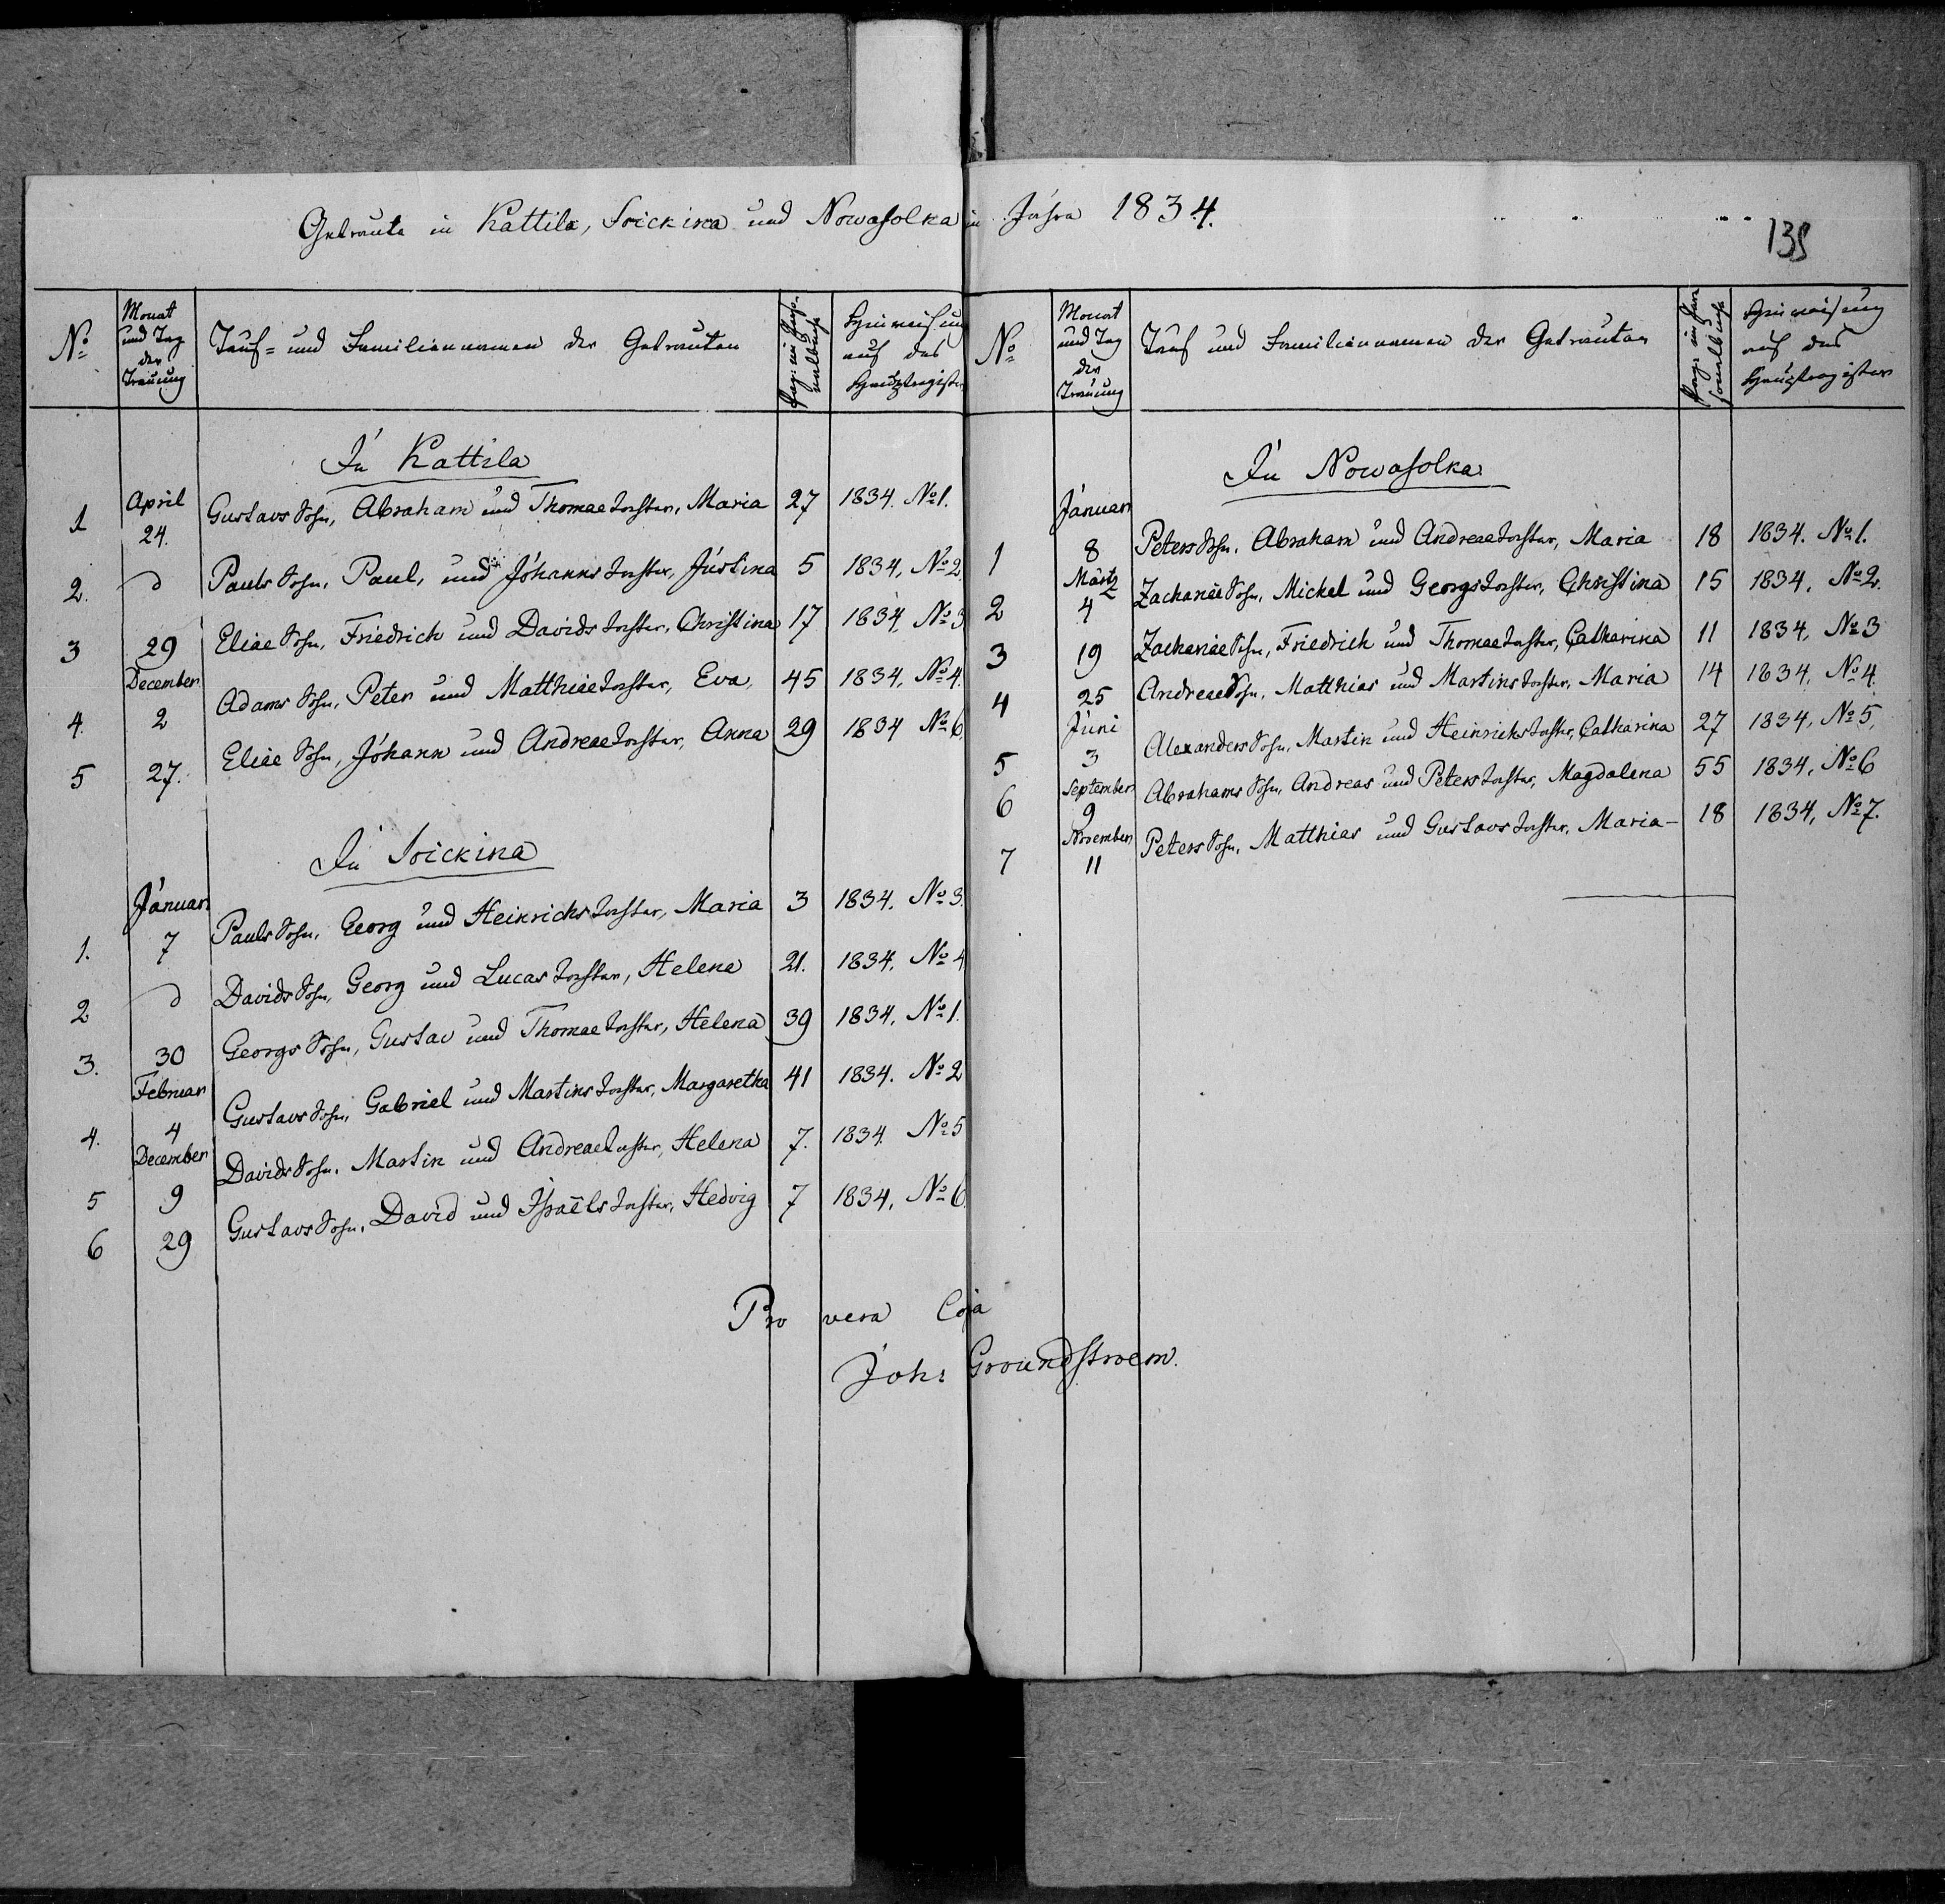 Getraute in Kattila, Soickina und Nowasolka in Jahre 1834.
135
№
Monat
und Tag
der
Trauung
Tauf= und Familiennamen der Getrauten
Pag: im Perso-
nalbuch
Hinweisung
auf das
Hauptregister
In Kattila
April
1 24. Gustavs Sohn, Abraham und Thomae Tochter, Maria 27 1834. №1.
2. d Pauls Sohn, Paul, und Johanns Tochter, Justina 5 1834, №2.
3 29 Eliae Sohn, Friedrich und Davids Tochter, Christina 17 1834, №3
December
4. 2 Adams Sohn, Peter und Matthiae Tochter, Eva, 45 1834, №4.
5 27. Eliae Sohn, Johann und Andreae Tochter, Anna 29 1834 №6.
In Soickina
Januar
1. 7 Pauls Sohn, Georg und Heinrichs Tochter, Maria 3 1834. №3.
2 d Davids Sohn, Georg und Lucas Tochter, Helena 21. 1834. №4
3. 30 Georgs Sohn, Gustav und Thomae Tochter, Helena 39 1834, №1.
Februar
4. 4 Gustavs Sohn, Gabriel und Martins Tochter, Margaretha 41 1834. №2
December
5 9 Davids Sohn, Martin und Andreae Tochter, Helena 7. 1834. №5
6 29 Gustavs Sohn, David und Israëls Tochter, Hedvig 7 1834, №6.
Pro vera Copia
Joh: Groundstroem.
№
Monat
und Tag
der
Trauung
Tauf und Familiennamen der Getrauten
Pag: im Per-
sonalbuch
Hinweisung
auf das
Hauptregister
In Nowasolka
Januar
1 8 Peters Sohn, Abraham und Andreae Tochter, Maria 18 1834. №1.
Märtz
2 4 Zachariae Sohn, Michel und Georgs Tochter, Christina 15 1834, №2.
3 19 Zachariae Sohn, Friedrich und Thomae Tochter, Catharina 11 1834, №3
4 25 Andreae Sohn, Matthias und Martins Tochter, Maria 14 1834, №4.
Juni
5 3 Alexanders Sohn, Martin und Heinrichs Tochter, Catharina 27 1834, №5,
September
6 9 Abrahams Sohn, Andreas und Peters Tochter, Magdalena 55 1834, №6
November
7 11 Peters Sohn, Matthias und Gustavs Tochter, Maria- 18 1834, №7.